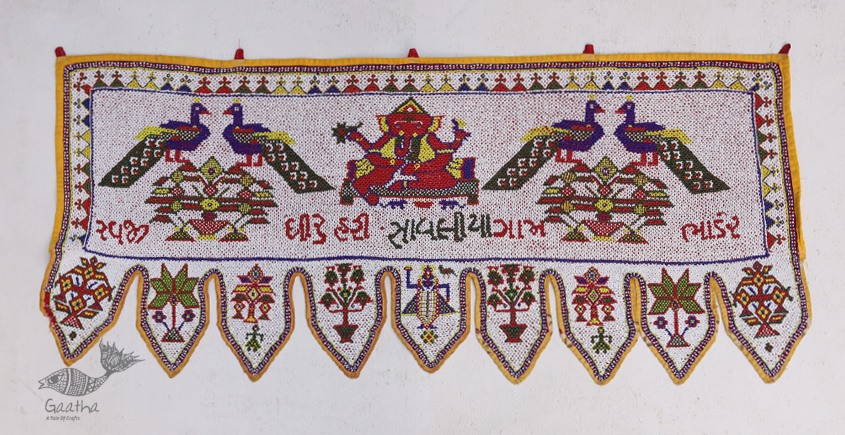 રવજી ધીરુ હરી · સાવલીયા ગામ ભાડેર
Gaatha
A Tale Of Crafts